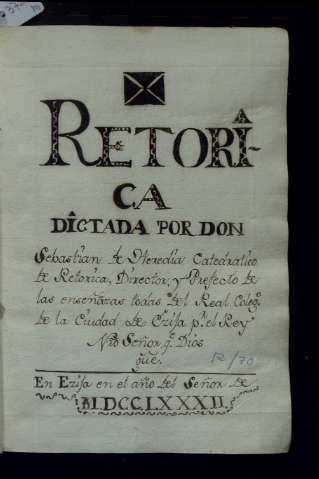 RETORÎ-
CA
DÎCTADA POR DON
Sebastian de Heredia Catedratico
de Retorica, Director, y Prefecto de
las enseñãzas todas del Real Coleg.º
de la Ciudad de Ezija p.r el Rey
Ntrõ Señor q.e Dios
gue.
R/70
En Ezija en el año del Señor de
M.DCC.LXXXII.